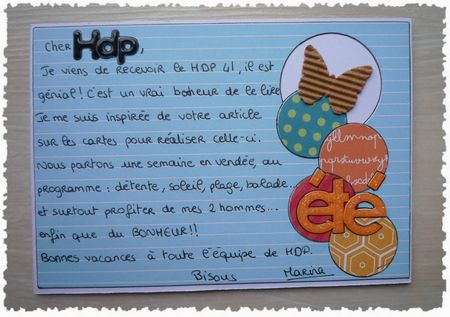 Cher Hdp,
Je viens de recevoir le HDP 41, il est
génial! c'est un vrai bonheur de le lire
Je me suis inspirée de votre article
sur les cartes pour réaliser celle-ci.
Nous partons une semaine en vendée, au
programme : détente, soleil, plage, balade...
et surtout profiter de mes 2 hommes...
enfin que du BONHEUR!!
Bonnes vacances à toute l'équipe de HDP.
Bisous Marina
été